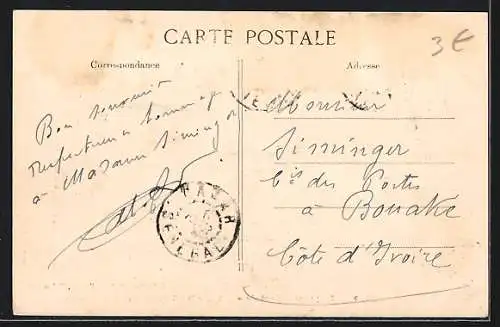 CARTE POSTALE
3€
Correspondance
Adresse
Bon souvenir
respectueux hommages
à Madame Siminger
Monsieur
Siminger
Cis des Postes
à Bouaké
Côte d'Ivoire
DAKAR
SENEGAL